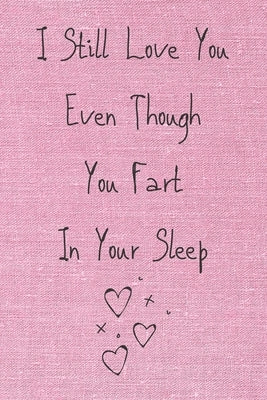 I Still Love You
Even Though
You Fart
In Your Sleep